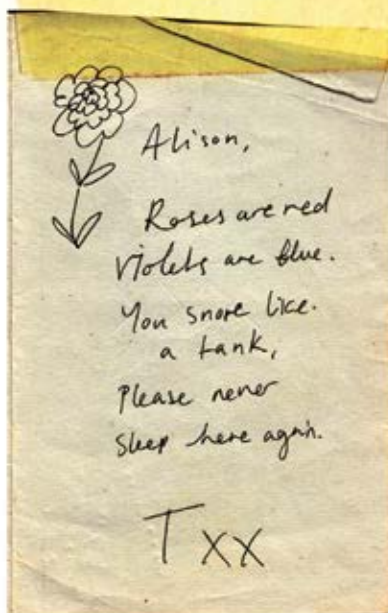 Alison,
Roses are red
violets are blue.
You snore like.
a tank,
Please never
sleep here again.
T xx